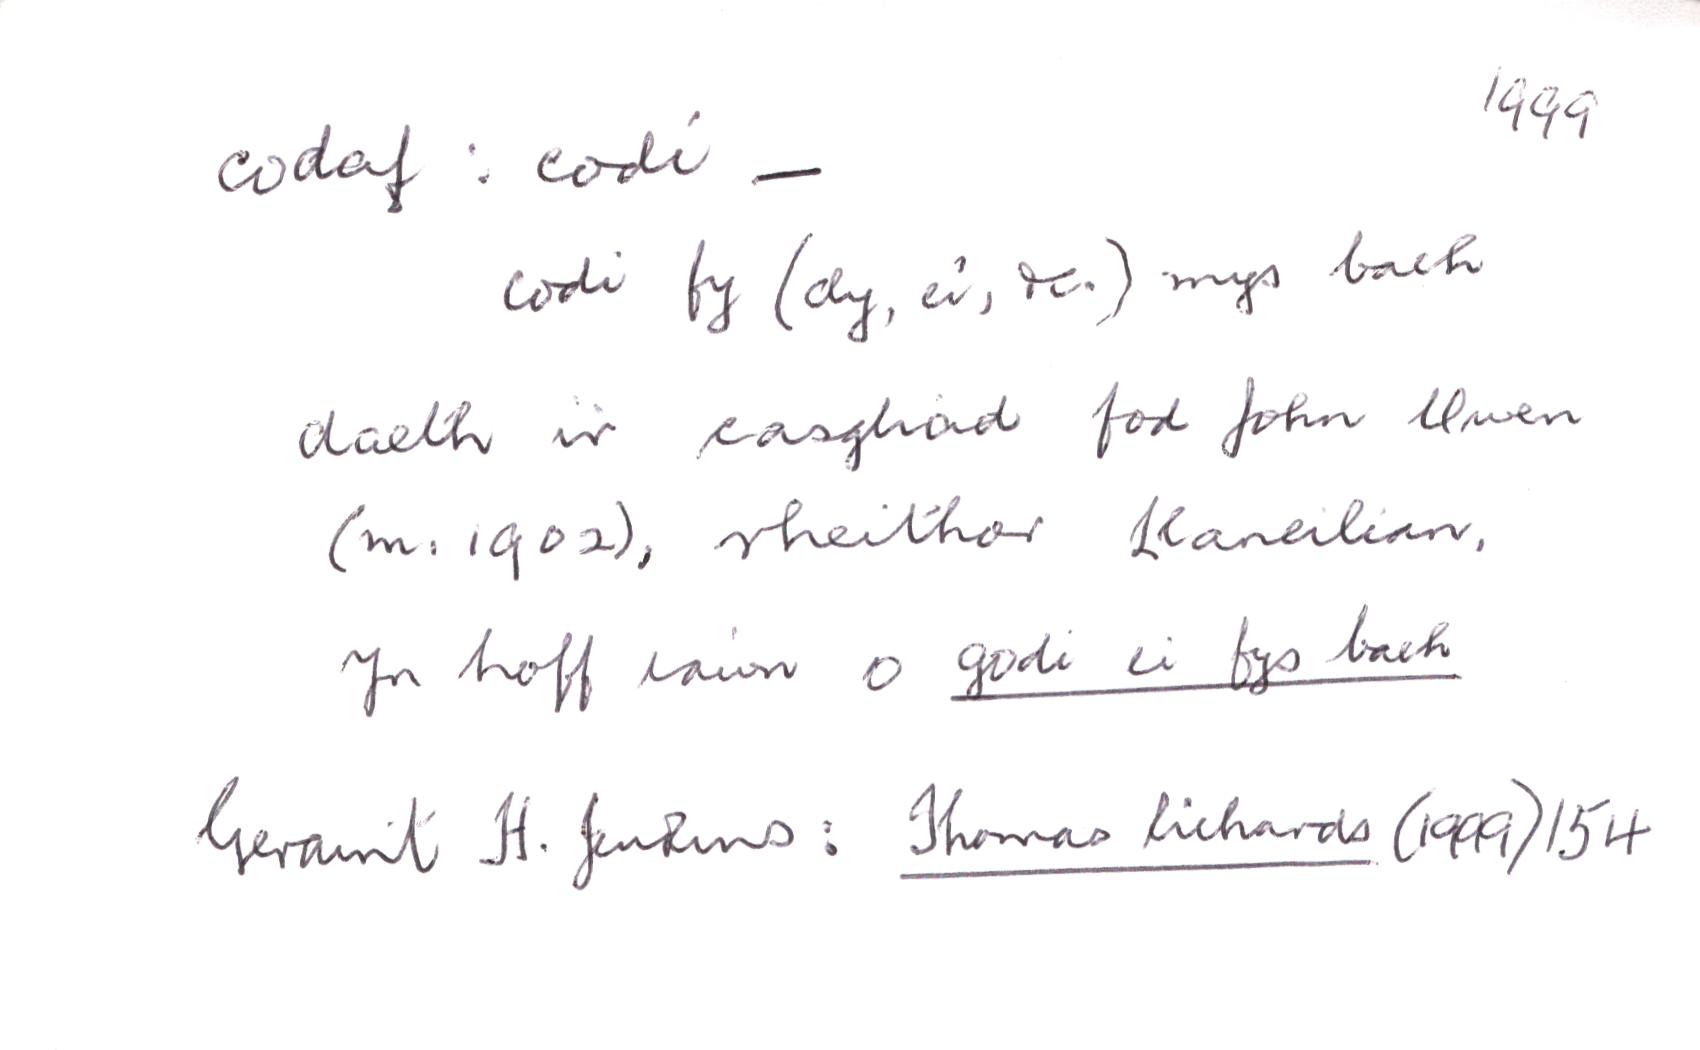 1999
codaf : codi —
codi fy (dy, ei, &c.) mys bach
daeth i'r casgliad fod John Owen
(m. 1902), rheithor Llaneilian,
yn hoff iawn o godi ei fys bach
Geraint H. Jenkins: Thomas Richards (1999) 154